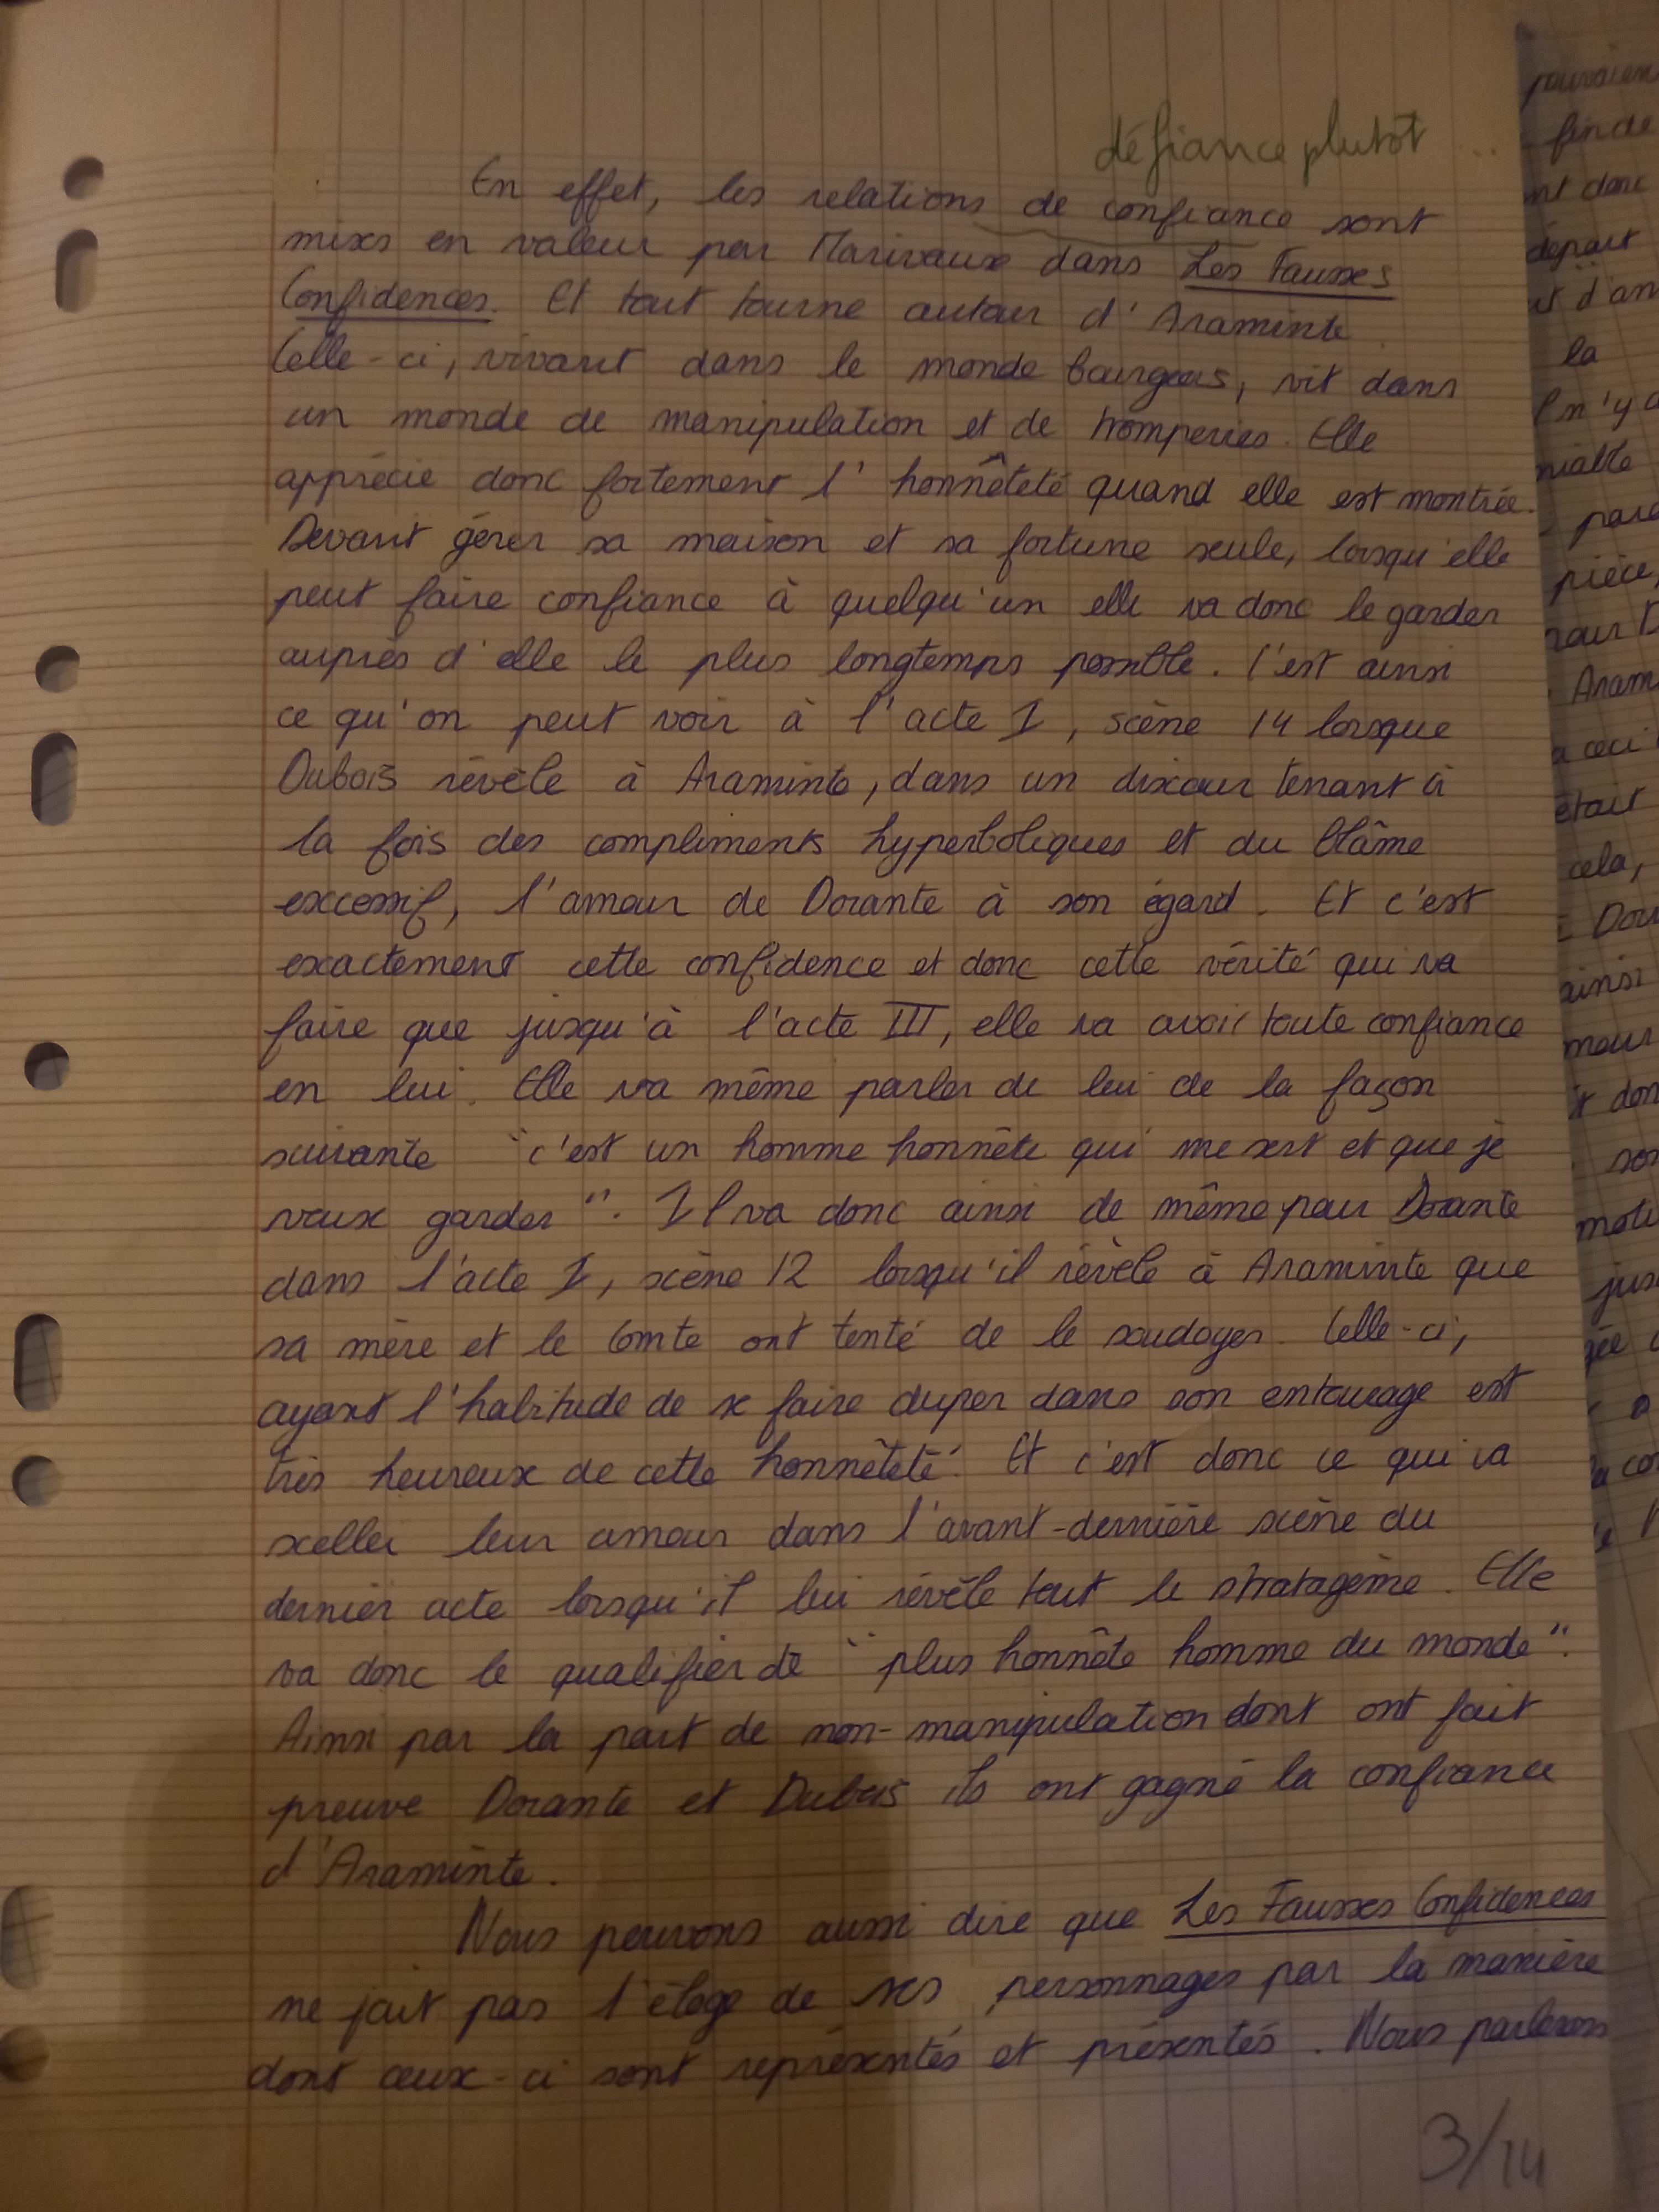 défiance plutôt ...
En effet, les relations de confiance sont
mises en valeur par Marivaux dans Les Fausses
Confidences. Et tout tourne autour d'Araminte.
Celle-ci, vivant dans le monde bourgeois, vit dans
un monde de manipulation et de tromperies. Elle
apprécie donc fortement l'honnêteté quand elle est montrée.
Devant gérer sa maison et sa fortune seule, lorsqu'elle
peut faire confiance à quelqu'un elle va donc le garder
auprès d'elle le plus longtemps possible. C'est ainsi
ce qu'on peut voir à l'acte I, scène 14 lorsque
Dubois révèle à Araminte, dans un discour tenant à
la fois des compliments hyperboliques et du blâme
excessif, l'amour de Dorante à son égard. Et c'est
exactement cette confidence et donc cette vérité qui va
faire que jusqu'à l'acte III, elle va avoir toute confiance
en lui. Elle va même parler de lui de la façon
suivante "c'est un homme honnête qui me sert et que je
veux garder". Il va donc ainsi de même pour Dorante
dans l'acte I, scène 12 lorsqu'il révèle à Araminte que
sa mère et le Comte ont tenté de le soudoyer. Celle-ci,
ayant l'habitude de se faire duper dans son entourage est
très heureux de cette honnêteté. Et c'est donc ce qui va
sceller leur amour dans l'avant-dernière scène du
dernier acte lorsqu'il lui révèle tout le stratagème. Elle
va donc le qualifier de "plus honnête homme du monde".
Ainsi par la part de non-manipulation dont ont fait
preuve Dorante et Dubois ils ont gagné la confiance
d'Araminte.
Nous pouvons aussi dire que Les Fausses Confidences
ne fait pas l'éloge de ses personnages par la manière
dont ceux-ci sont représentés et présentés. Nous parlerons
3/14
donc
départ
la
pièce,
était
cela,
ainsi